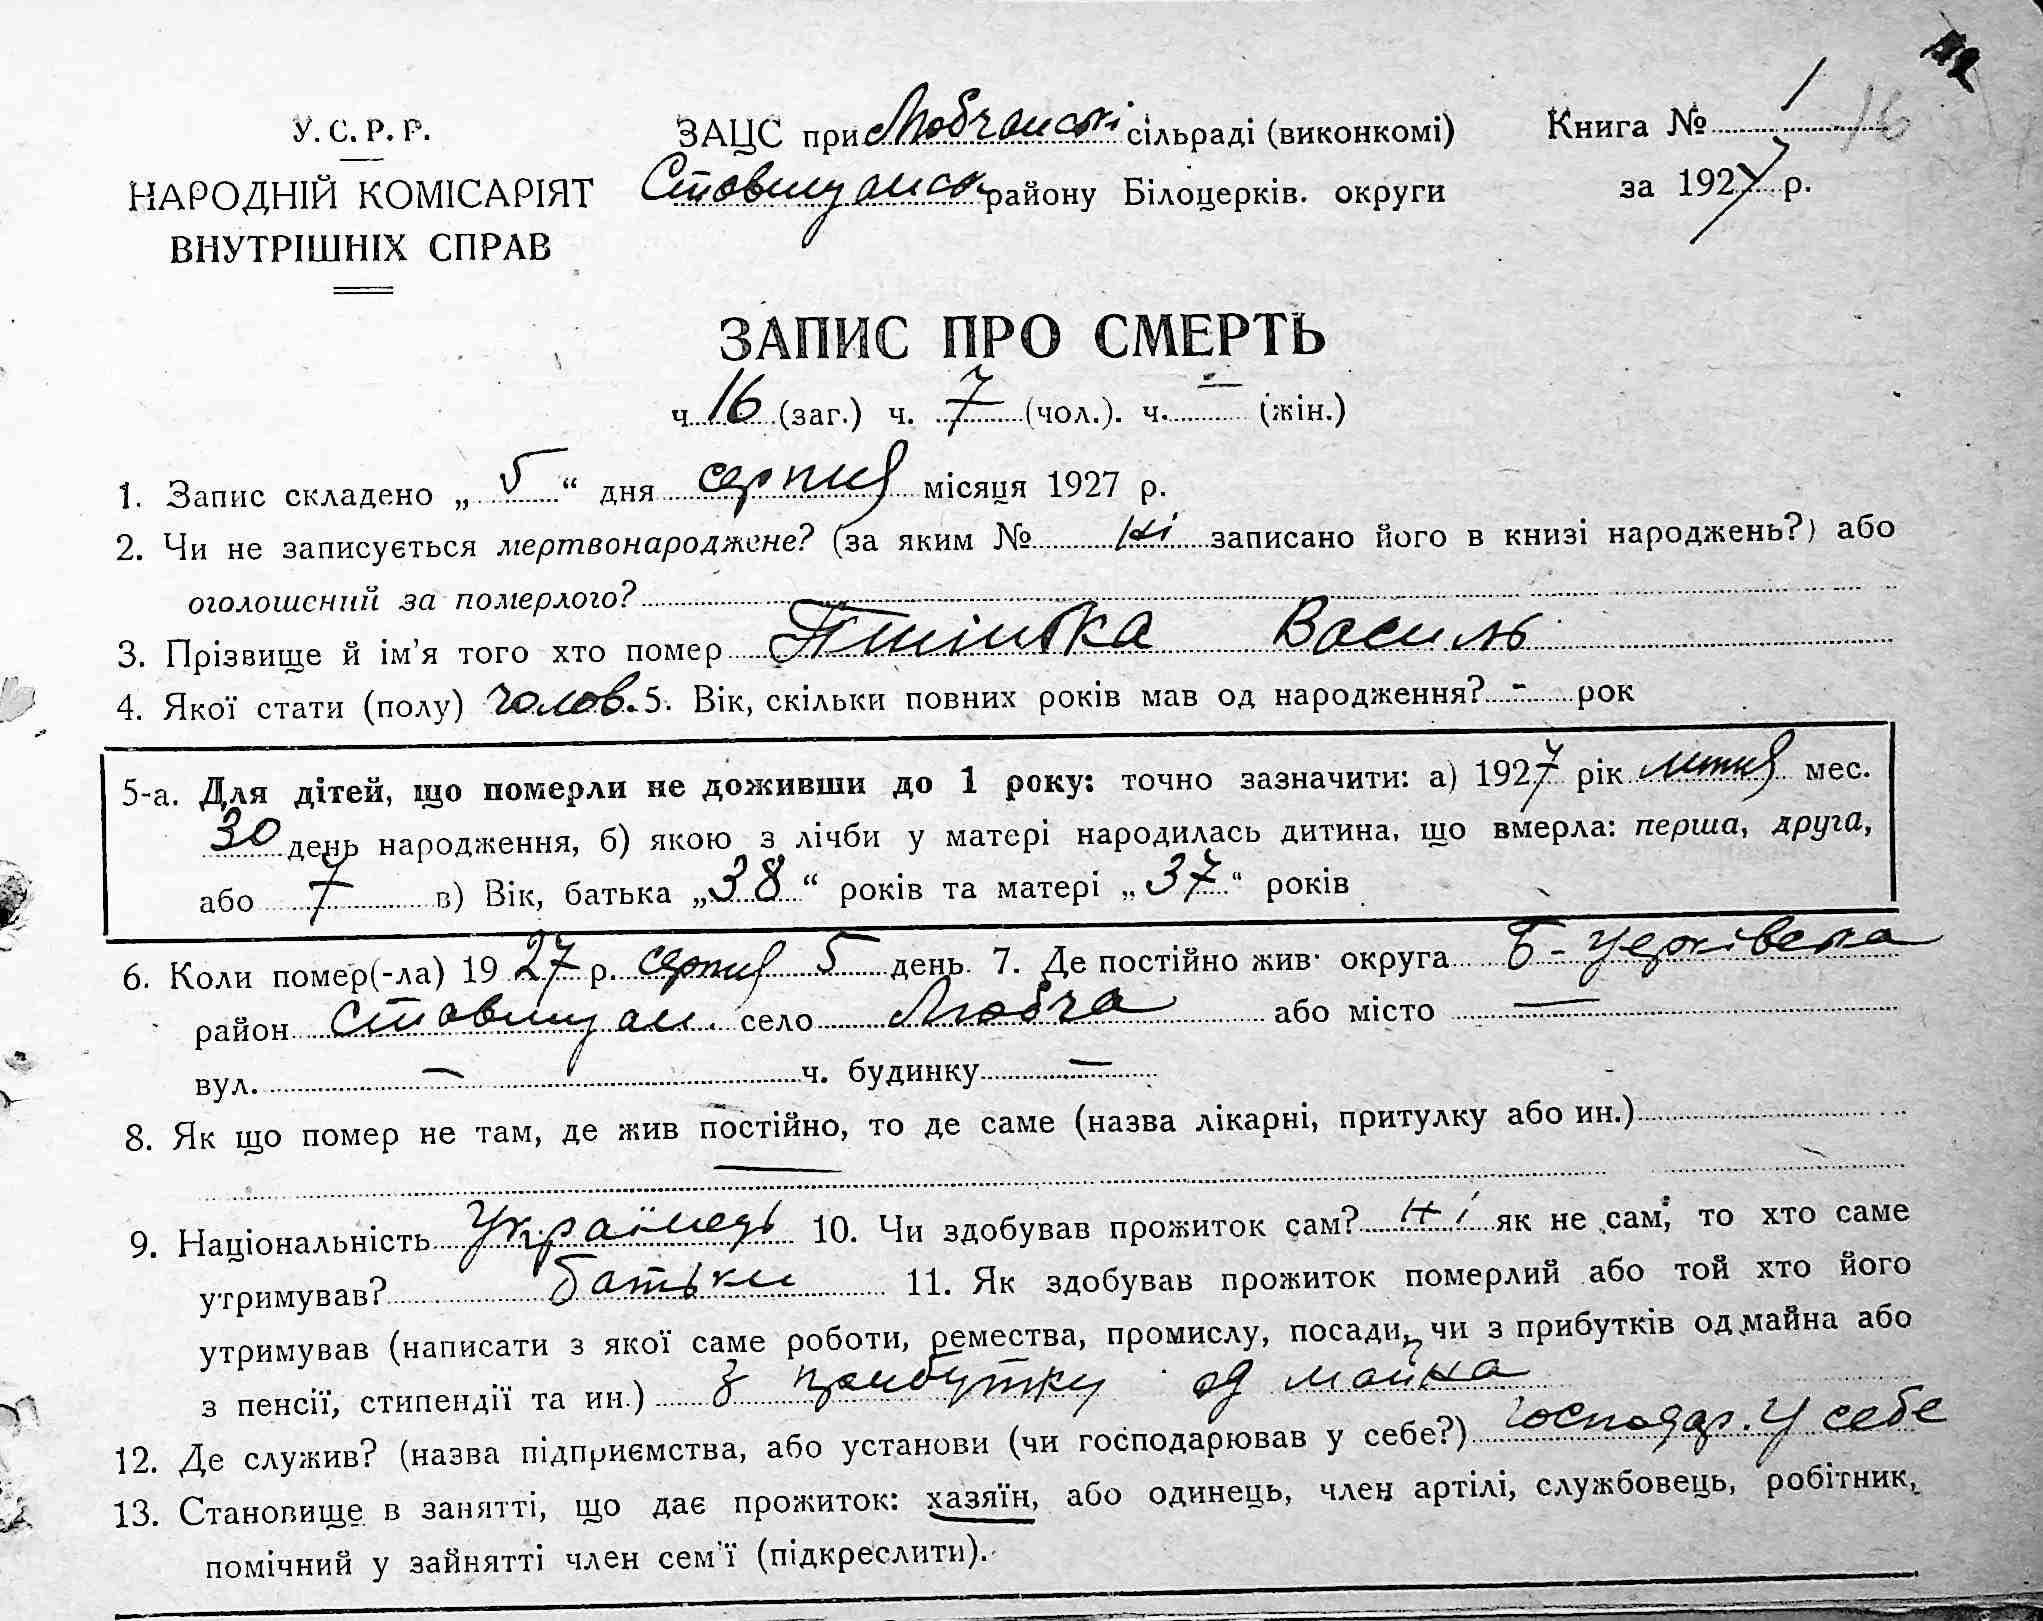 У. С. Р. Р.
НАРОДНІЙ КОМІСАРІЯТ
ВНУТРІШНІХ СПРАВ
ЗАЦС при Любчанські сільраді (виконкомі)
Ставищансь району Білоцерків. округи
Книга № 1
16
за 1927 р.
ЗАПИС ПРО СМЕРТЬ
ч. 16 (заг.) ч. 7 (чол.). ч. – (жін.)
1. Запис складено „ 5 “ дня серпня місяця 1927 р.
2. Чи не записується мертвонароджене? (за яким № ні записано його в книзі народжень?) або
оголошений за померлого?
3. Прізвище й ім'я того хто помер Василь
4. Якої стати (полу) чолов. 5. Вік, скільки повних років мав од народження? - рок
5-а. Для дітей, що померли не доживши до 1 року: точно зазначити: а) 1927 рік липня мес.
30 день народження, б) якою з лічби у матері народилась дитина, що вмерла: перша, друга,
або 7 в) Вік, батька „38“ років та матері „37“ років
6. Коли помер(-ла) 1927 р. серпня 5 день. 7. Де постійно жив округа Б-Церківська
район Ставищан. село Любча або місто —
вул. — ч. будинку —
8. Як що помер не там, де жив постійно, то де саме (назва лікарні, притулку або ин.)
—
9. Національність Українець 10. Чи здобував прожиток сам? ні як не сам, то хто саме
утримував? батьки 11. Як здобував прожиток померлий або той хто його
утримував (написати з якої саме роботи, ремества, промислу, посади, чи з прибутків од майна або
з пенсії, стипендії та ин.) з прибутку од майна
12. Де служив? (назва підприємства, або установи (чи господарював у себе?) господар. у себе
13. Становище в занятті, що дає прожиток: хазяїн, або одинець, член артілі, службовець, робітник,
помічний у зайнятті член сем'ї (підкреслити).